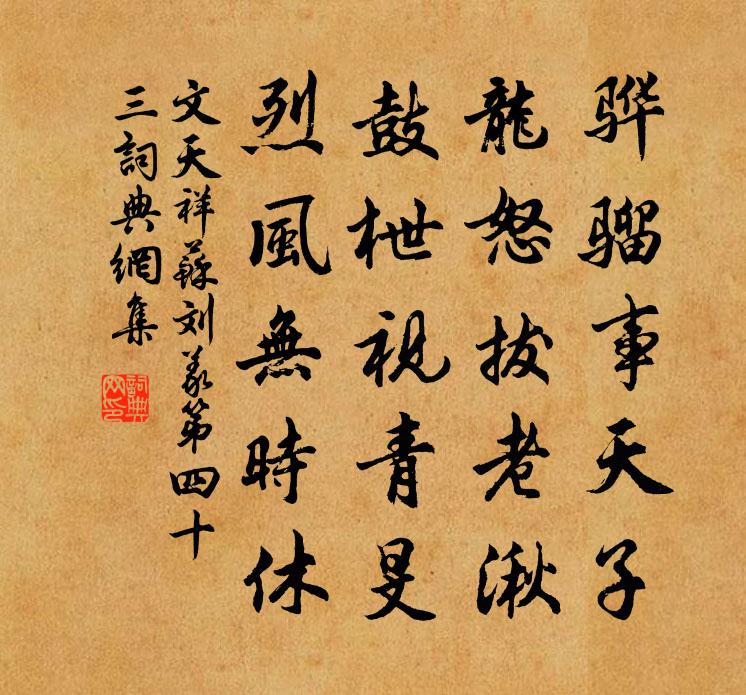 骅骝事天子
龍怒拔老湫
鼓枻視青旻
烈風無時休
文天祥蘇刘義第四十
三詞典網集
詞典網印